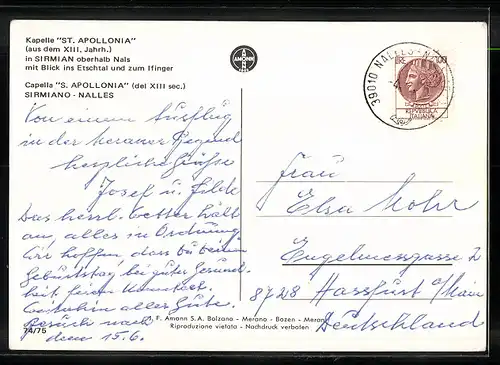 Kapelle "ST. APOLLONIA"
(aus dem XIII. Jahrh.)
in SIRMIAN oberhalb Nals
mit Blick ins Etschtal und zum Ifinger
Capella "S. APOLLONIA" (del XIII sec.)
SIRMIANO - NALLES
AMONN
39010 NALLES
LIRE 100
REPVBBLICA
ITALIANA
Von einem Ausflug
in der Meraner Gegend
herzliche Grüße
Josef u. Hilde
Das herrl. Wetter hält
an, alles in Ordnung.
Wir hoffen, dass Du Deinen
Geburtstag bei guter Gesund-
heit feiern
alles Gute.
Besuch nach
dem 15.6.
Frau
Elsa Mohr
Engelmessgasse 2
8728 Hassfurt a/Main
Deutschland
74/75
J. F. Amonn S.A. Bolzano - Merano - Bozen - Meran
Riproduzione vietata - Nachdruck verboten